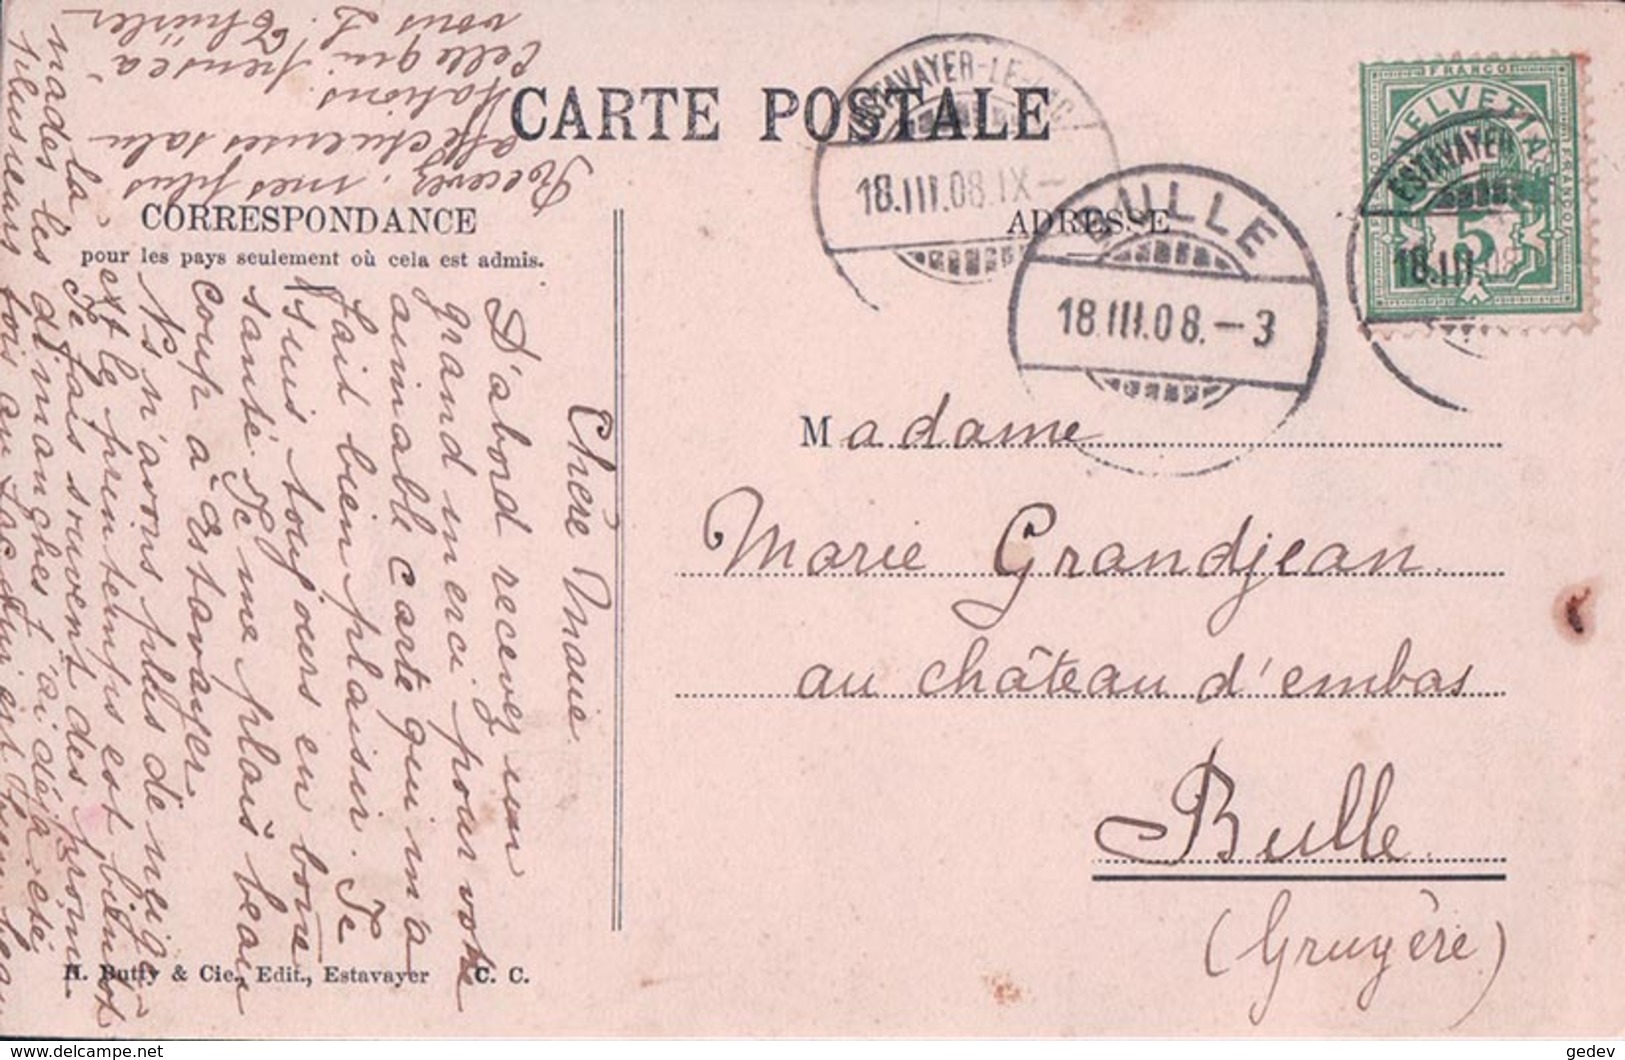 CARTE POSTALE
CORRESPONDANCE
pour les pays seulement où cela est admis.
ADRESSE
ESTAVAYER-LE-LAC
18.III.08.IX-
BULLE
18.III.08.-3
FRANCO
HELVETIA
5
ESTAVAYER
18.III.08
Madame
Marie Grandjean.
au château d'embas
Bulle.
(Gruyère)
Chère Marie.
D'abord recevez un
grand merci pour votre
aimable carte qui m'a
fait bien plaisir. Je
suis toujours en bonne
santé. Je me plais beau
coup à Estavayer
Ns n'avons plus de neige
et le printemps est bientôt
là. Je fais souvent des prome-
nades les dimanches j'ai déjà été
plusieurs fois au lac
Recevez, mes plus
affectueuses salu
tations.
Celle qui pense à
vous L.
H. Butty & Cie., Edit., Estavayer C. C.
gedev